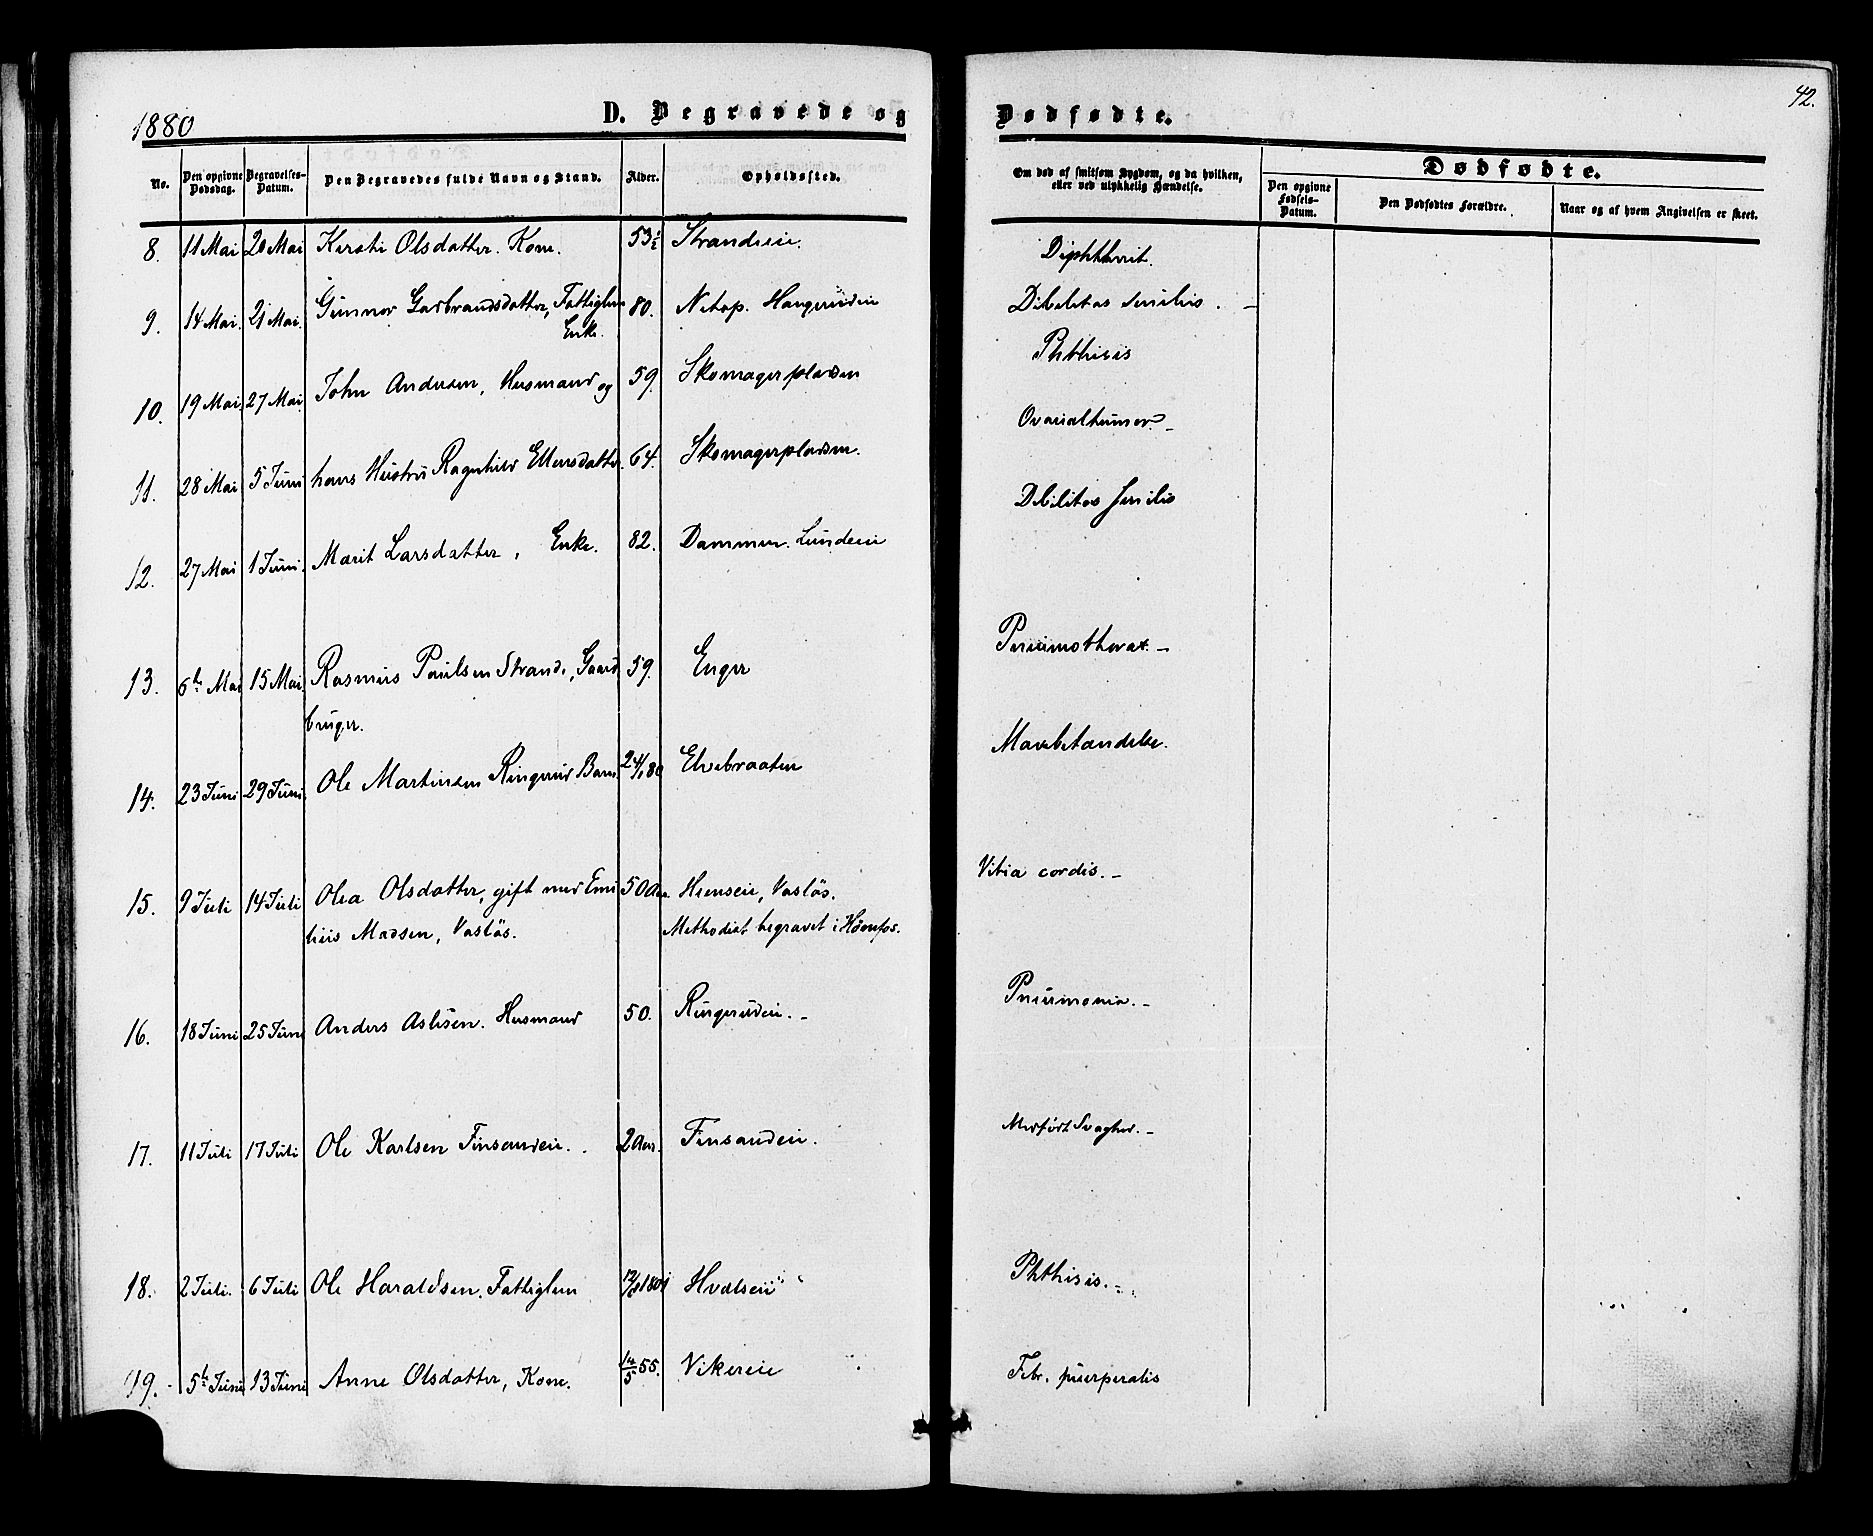 1880 D. Begravede og Dødfødte. 42.
No. Den opgivne Dødsdag. Begravelses-Datum. Den Begravedes fulde Navn og Stand. Alder. Opholdssted. Om død af smitsom Sygdom, og da hvilken, eller ved ulykkelig Hændelse. Dødfødte.
Den opgivne Fødsels-Datum. Den Dødfødtes Forældre. Naar og af hvem Angivelsen er skeet.
8. 11 Mai 20 Mai Kersti Olsdatter. Kone. 53½ Strandeie. Diphtherit.
9. 14 Mai. 21 Mai. Gunnor Garbrandsdatter, Fattiglem 80. Debilitas senilis. –
Enke.
10. 19 Mai. 27 Mai John Andersen, Husmand og 59. Skomagerpladsen Phthisis
11. 28 Mai 5 Juni hans Hustru Ragnhild Ellensdatter. 64. Skomagerpladsen. Ovarialtumor. –
12. 27 Mai 1 Juni. Marit Larsdatter, Enke. 82. Dammen. Lundeeie Debilitas senilis
13. 6te Mai 15 Mai. Rasmus Paulsen Strande, Gaard 59. Enger Pneumothorax. –
bruger.
14. 23 Juni 29 Juni. Ole Martinsen Ringerud Barn 24/1 80 Elvebraaten Mavebetændelse.
15. 9 Juli 14 Juli Olea Olsdatter, gift med Emi 50 Aar Hensei, Vasløs. Vitia cordis. –
lius Madsen, Vasløs. Methodist begravet i Hønefos.
16. 18 Juni 25 Juni Anders Aslesen. Husmand 50. Ringerudeie. – Pneumonia. –
17. 11 Juli 17 Juli Ole Karlsen Finsandeie. 2 Aar. Finsandeie. Medfødt Svaghed. –
18. 2 Juli. 6 Juli Ole Haraldsen. Fattiglem 1801 Hvalseie Phthisis. –
19. 5te Juni 13 Juni Anne Olsdatter, Kone. 14/5 55. Vikereie Febr. puerperalis